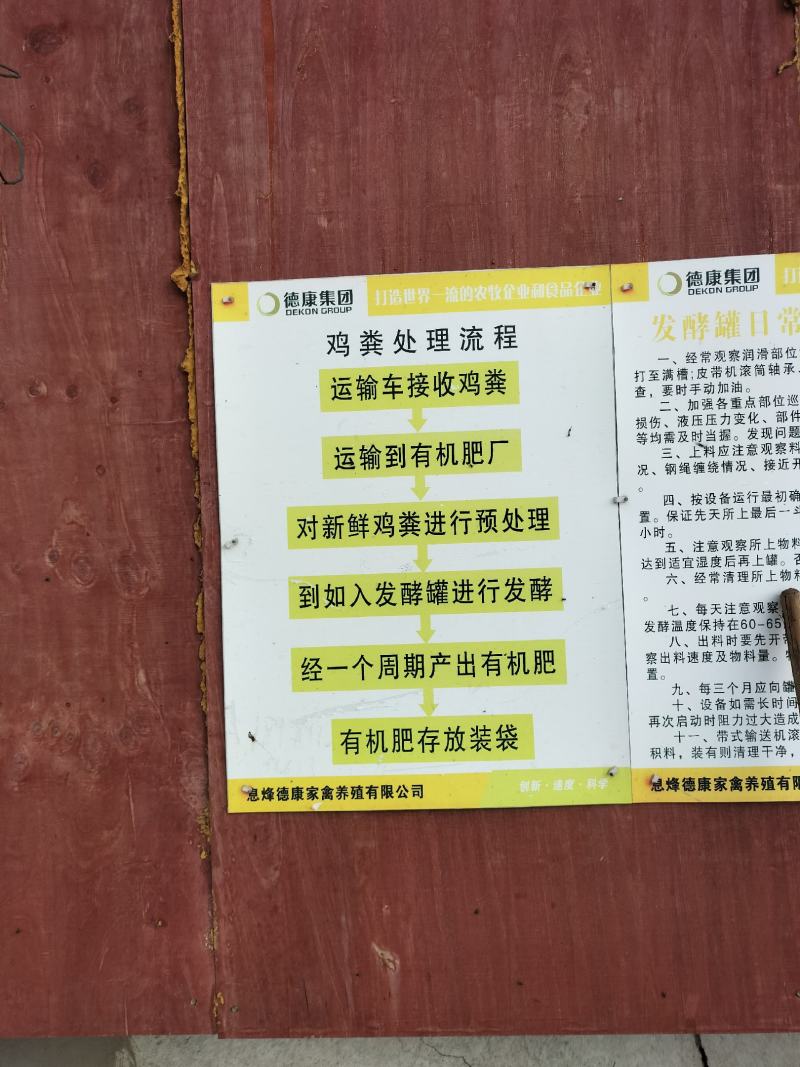 德康集团
DEKON GROUP
打造世界一流的农牧企业和食品企业
鸡粪处理流程
运输车接收鸡粪
运输到有机肥厂
对新鲜鸡粪进行预处理
到如入发酵罐进行发酵
经一个周期产出有机肥
有机肥存放装袋
息烽德康家禽养殖有限公司
创新·速度·科学
德康集团
DEKON GROUP
打
发酵罐日常
一、经常观察润滑部位
打至满槽;皮带机滚筒轴承、
查，要时手动加油。
二、加强各重点部位巡
损伤、液压压力变化、部件
等均需及时当握。发现问题
三、上料应注意观察料
况、钢绳缠绕情况、接近开
。
四、按设备运行最初确
置。保证先天所上最后一斗
小时。
五、注意观察所上物料
达到适宜湿度后再上罐。否
六、经常清理所上物料
。
七、每天注意观察
发酵温度保持在60-65
八、出料时要先开
察出料速度及物料量。
置。
九、每三个月应向罐
十、设备如需长时间
再次启动时阻力过大造成
十一、带式输送机滚
积料，装有则清理干净，
息烽德康家禽养殖有限